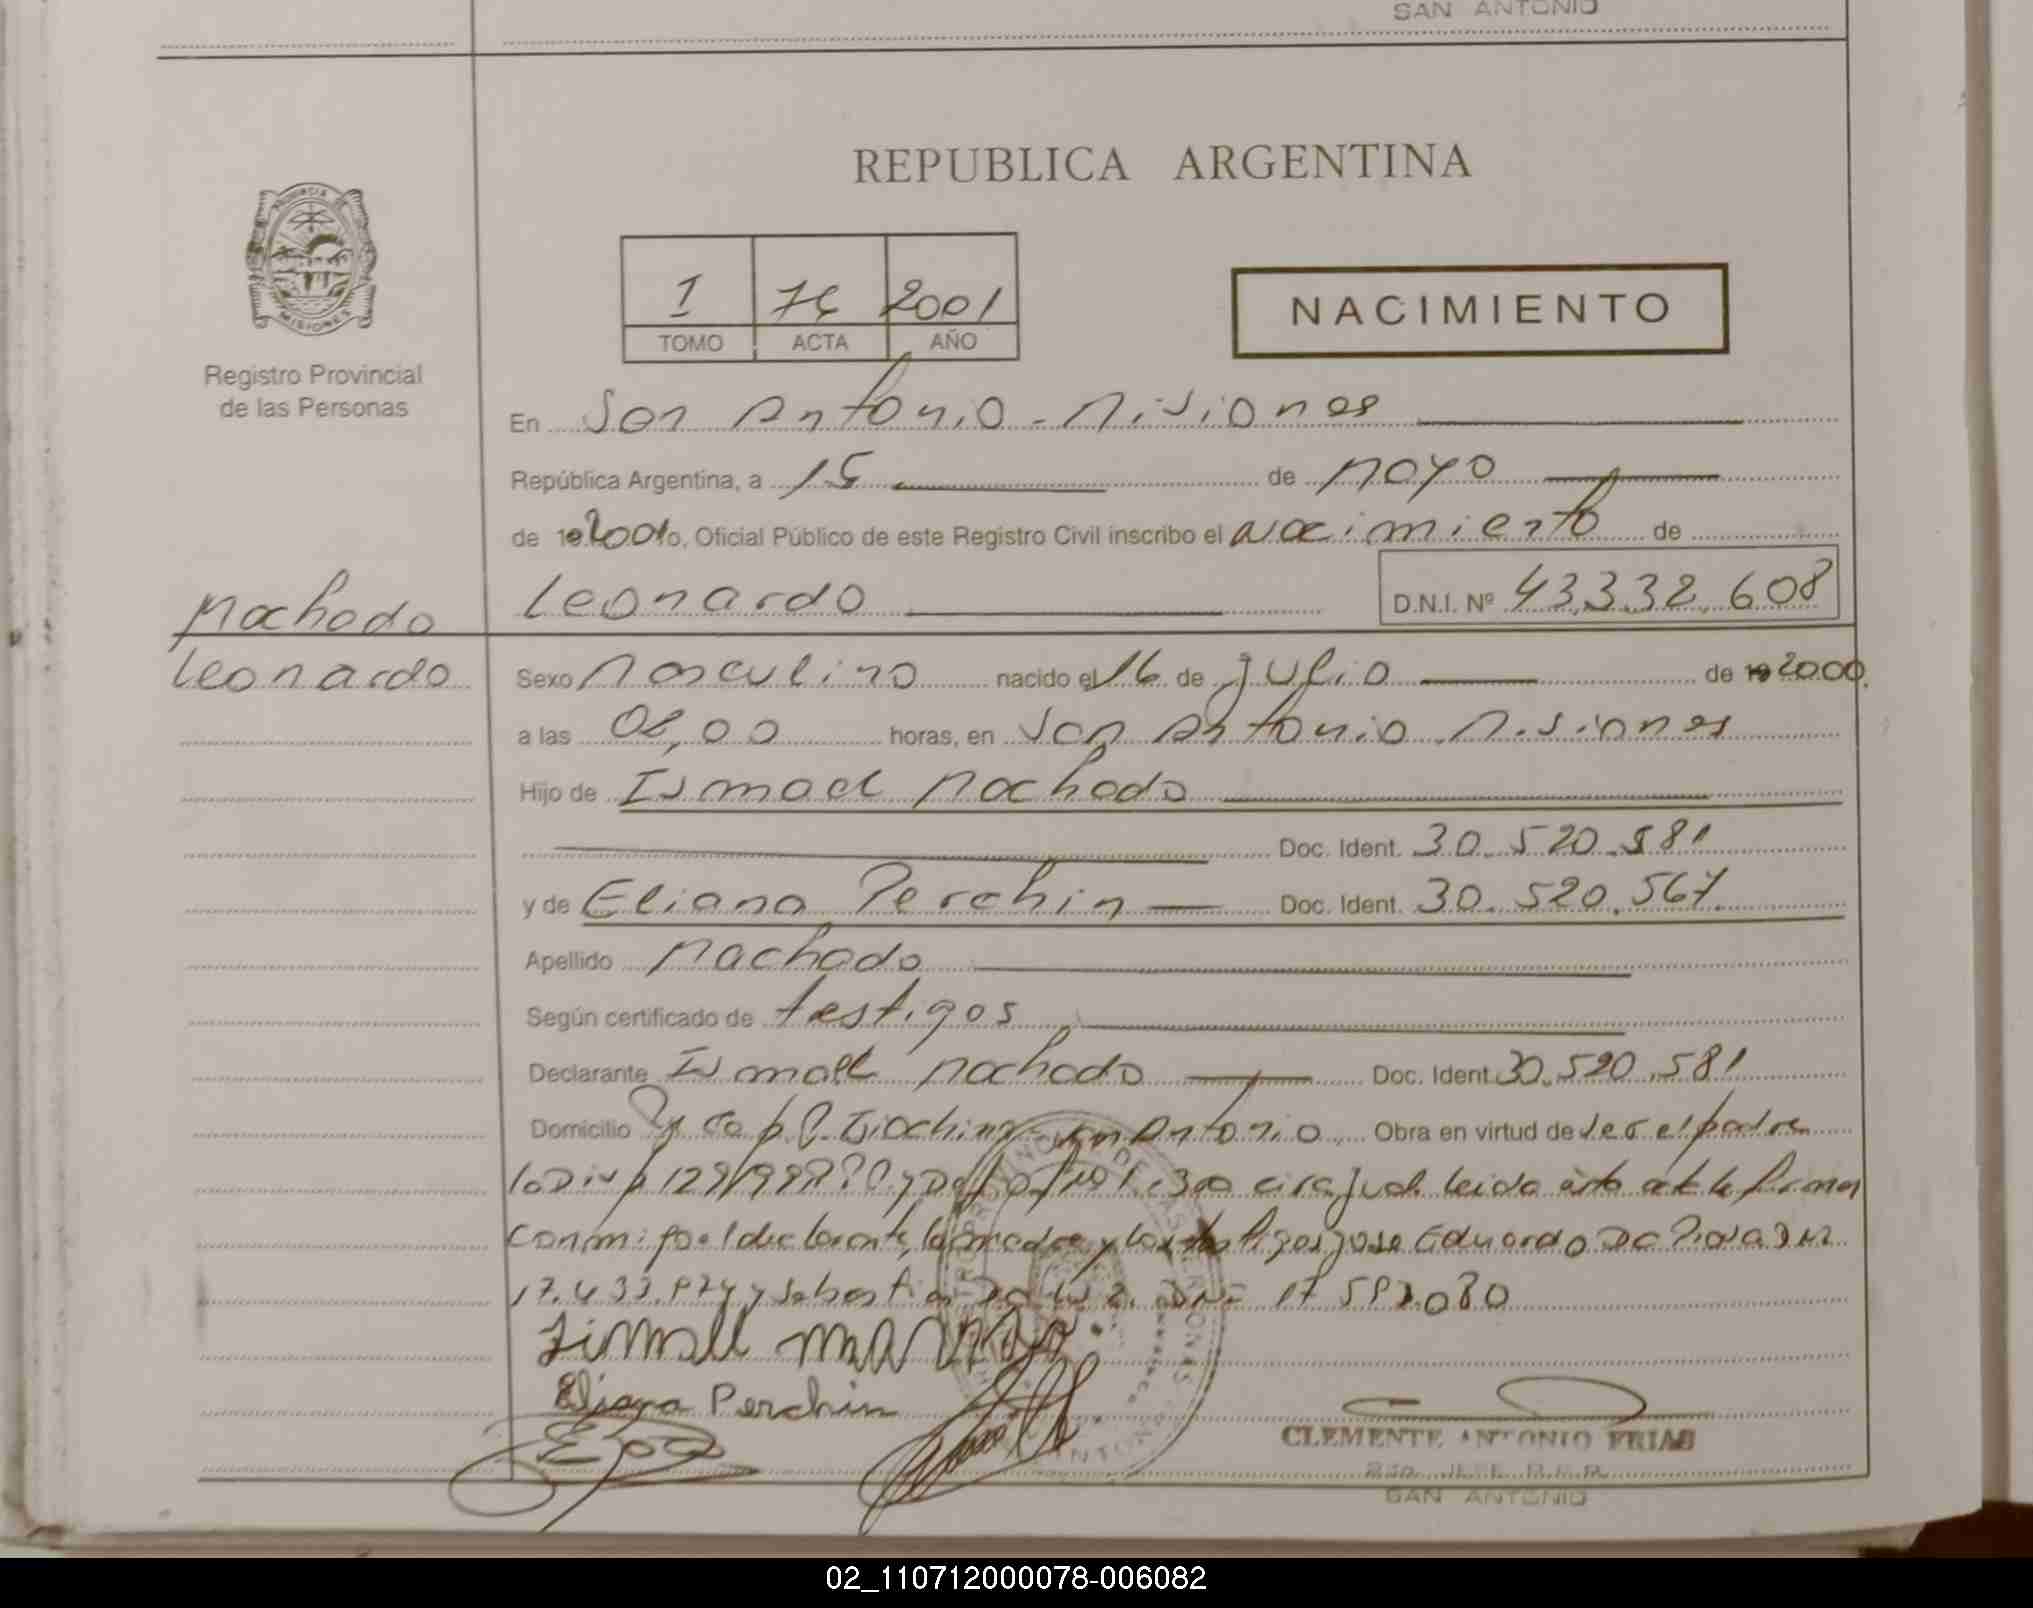 SAN ANTONIO
REPUBLICA ARGENTINA
PROVINCIA DE
MISIONES
Registro Provincial
de las Personas
1 2001
TOMO ACTA AÑO
NACIMIENTO
En San Antonio - Misiones
República Argentina, a 15 de Mayo
de 19 2001 Yo, Oficial Público de este Registro Civil inscribo el Nacimiento de
Leonardo D.N.I. Nº 43.332.608
Machado
Leonardo
Sexo Masculino nacido el 16 de Julio de 19 2000
a las 08,00 horas, en San Antonio Misiones
Hijo de Ismael Machado
Doc. Ident. 30.520.581
y de Eliana Perchin Doc. Ident. 30.520.567
Apellido Machado
Según certificado de testigos
Declarante Ismael Machado Doc. Ident. 30.520.581
Domicilio San Antonio Obra en virtud de ser el padre
leida esta acta la firman
conmigo el declarante, la madre y los testigos Jose Eduardo Da
17. y Sebastian Da
Eliana Perchin
CLEMENTE ANTONIO FRIAS
2do. JEFE R.P.P.
SAN ANTONIO
02_110712000078-006082